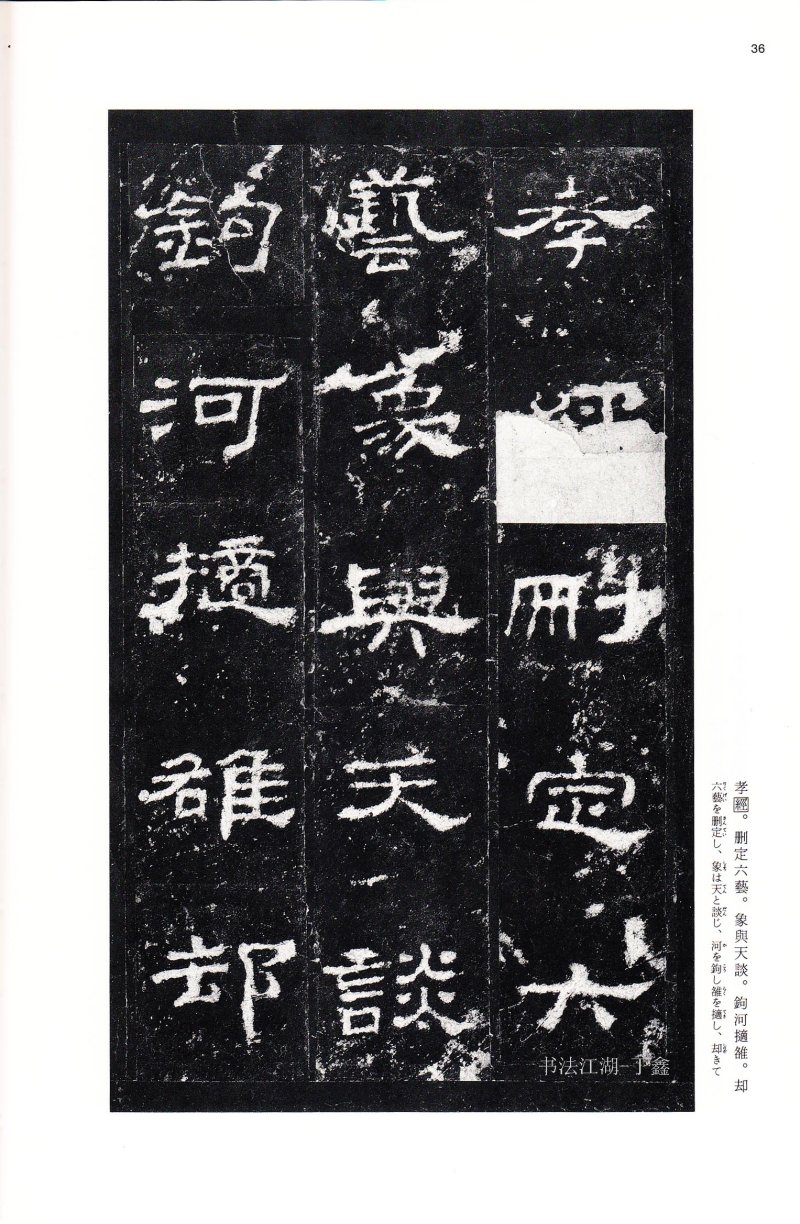 36
孝經刪定六
藝象與天談
鉤河擿雒却
书法江湖-丁鑫
孝經。刪定六藝。象與天談。鉤河擿雒。却
六藝を刪定し、象は天と談じ、河を鉤し雒を擿し、却きて